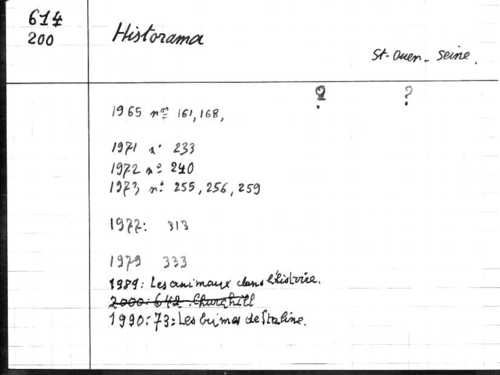 614
200
Historama
St-Ouen-Seine.
? ?
1965 nos 161, 168,
1971 n° 233
1972 n° 240
1973 n° 255, 256, 259
1977: 313
1979 333
1989: Les animaux dans l'histoire.
2000: 642 Churchill
1990: 73: Les crimes de Staline.